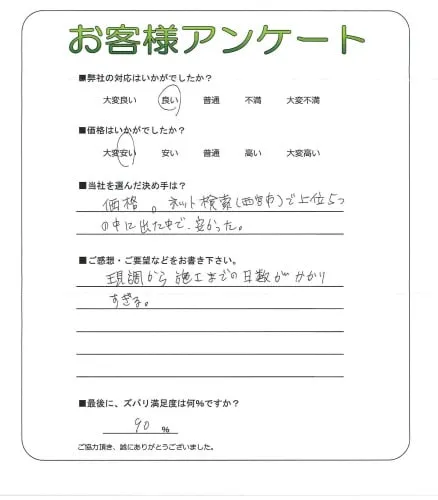 お客様アンケート
■弊社の対応はいかがでしたか？
大変良い 良い 普通 不満 大変不満
■価格はいかがでしたか？
大変安い 安い 普通 高い 大変高い
■当社を選んだ決め手は？
価格。ネット検索(西宮市)で上位5つ
の中に出た中で、安かった。
■ご感想・ご要望などをお書き下さい。
現調から施工までの日数がかかり
すぎる。
■最後に、ズバリ満足度は何％ですか？
90 ％
ご協力頂き、誠にありがとうございました。